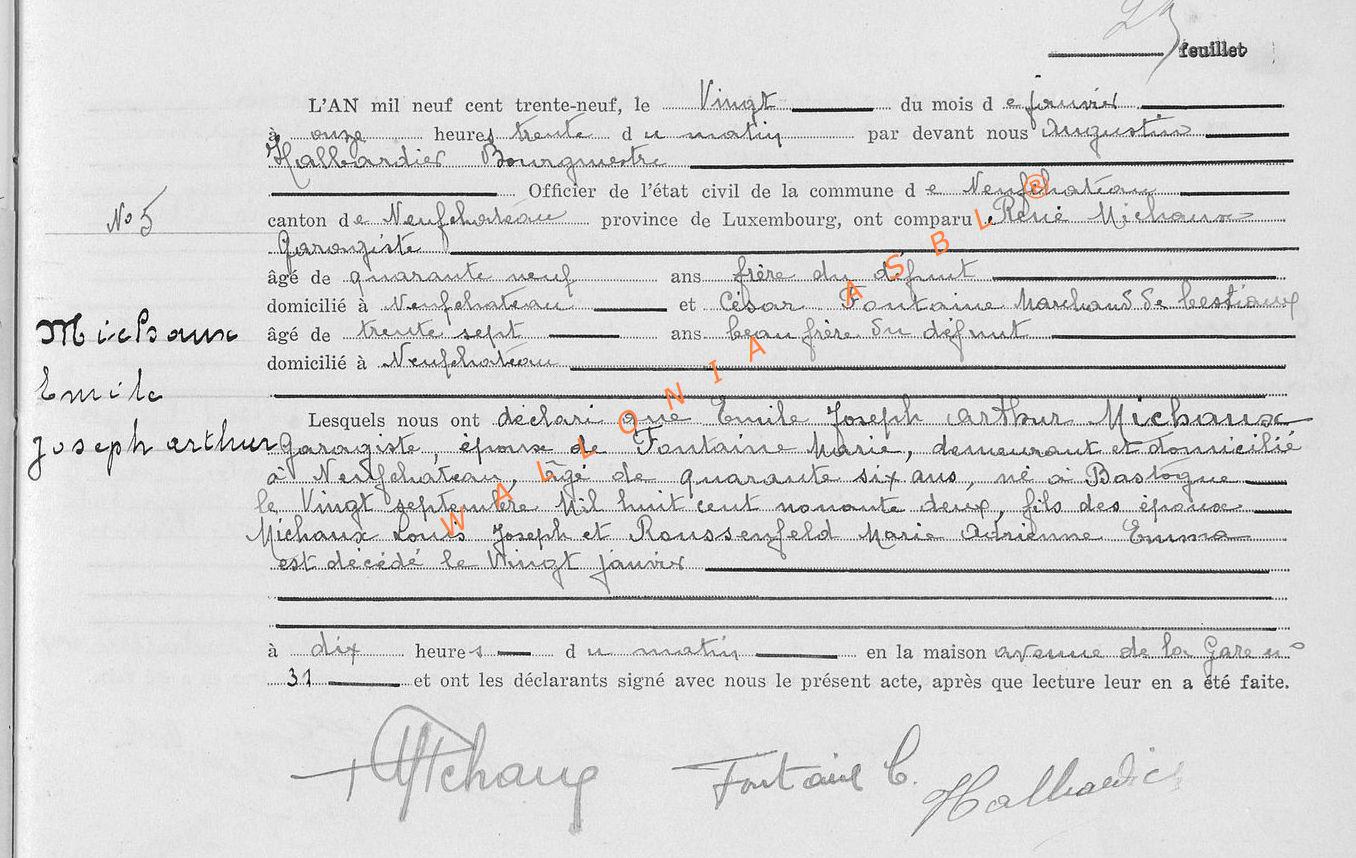 feuillet
L'AN mil neuf cent trente-neuf, le Vingt du mois de janvier
à onze heures trente du matin par devant nous Augustin
Hallbardier Bourgmestre
Officier de l'état civil de la commune de Neufchateau
N° 5
canton de Neufchateau province de Luxembourg, ont comparu René Michaux
Garagiste
âgé de quarante neuf ans frère du défunt
domicilié à Neufchateau et César Fontaine Marchand de bestiaux
Michaux
âgé de trente sept ans beau frère du défunt
domicilié à Neufchateau
Emile
Lesquels nous ont déclaré que Emile Joseph Arthur Michaux
Joseph arthur
Garagiste, époux de Fontaine Marie, demeurant et domicilié
à Neufchateau, âgé de quarante six ans, né à Bastogne
le Vingt septembre Mil huit cent nonante deux, fils des époux
Michaux Louis Joseph et Roussenfeld Marie Adrienne Emma
est décédé le Vingt janvier
à dix heures du matin en la maison avenue de la Gare n°
31 et ont les déclarants signé avec nous le présent acte, après que lecture leur en a été faite.
Fontaine C.
WALLONIA ASBL ®